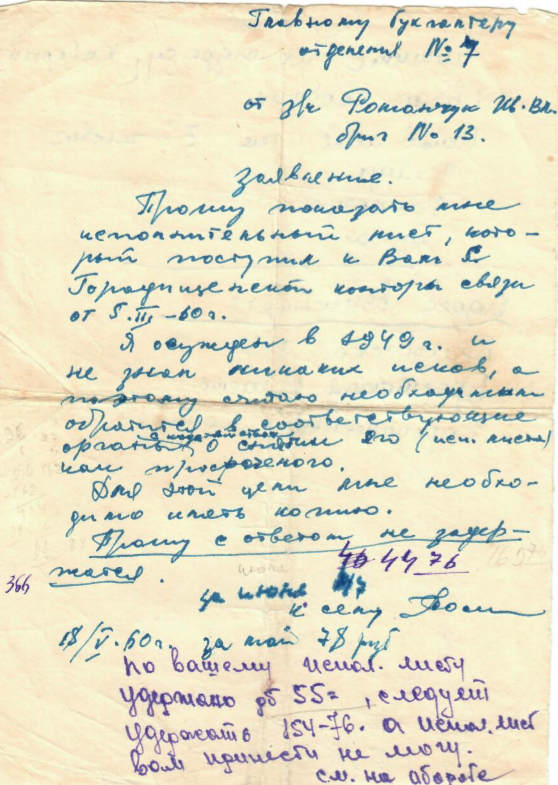 Главному бухгалтеру
отделения № 7
от з/к Романчук Ив. Вл.
бриг № 13.
Заявление.
Прошу показать мне
исполнительный лист, кото-
рый поступил к Вам с
Городищенской конторы связи
от 5.III-60г.
Я осужден в 1949 г. и
не знал никаких исков, а
поэтому считаю необходимым
обратится в соответствующие
органы с ходатайством о снятии его (исп. листа)
как просроченого.
Для этой цели мне необхо-
димо иметь копию.
Прошу с ответом не задер-
жатся.
44 76
366
за июня
к сему
18/V.60г. за май 78 руб
по вашему испол. листу
удержано 55=, следует
удержать 154-76. а испол. лист
вам принести не могу.
см. на обороте